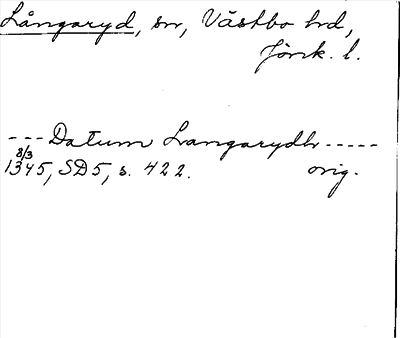 Långaryd, sn, Västbo hd,
Jönk. l.
---Datum Langarydh-----
8/3
1345, SD5, s. 422. orig.